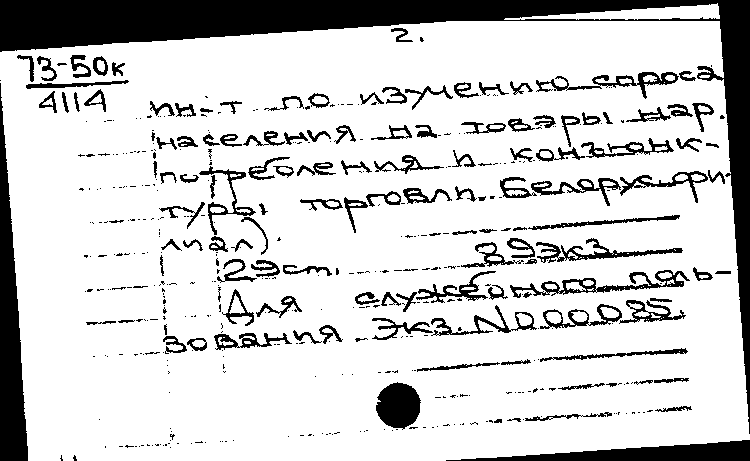 2.
73-50к
4114
ин-т по изучению спроса
населения на товары нар.
потребления и конъюнк-
туры торговли. Белорус. фи-
лиал).
29 ст. 89 экз.
Для служебного поль-
зования. Экз. N000085.